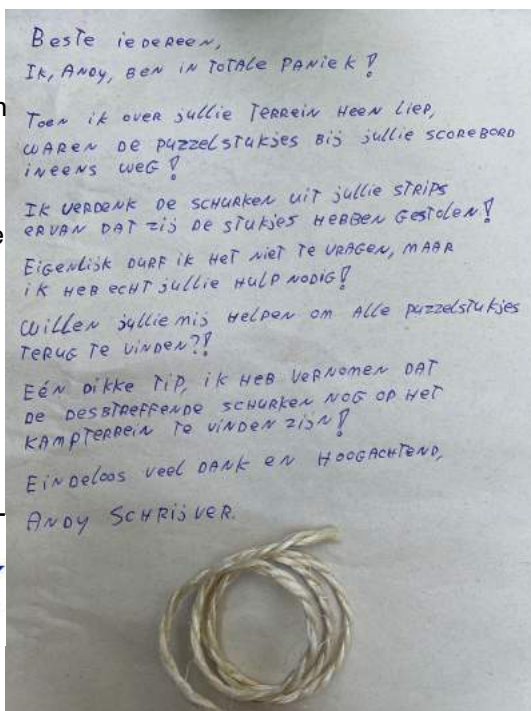 Beste iedereen,
Ik, Andy, ben in totale paniek!
Toen ik over jullie terrein heen liep,
waren de puzzelstukjes bij jullie scorebord
ineens weg!
Ik verdenk de schurken uit jullie strips
ervan dat zij de stukjes hebben gestolen!
Eigenlijk durf ik het niet te vragen, maar
ik heb echt jullie hulp nodig!
Willen jullie mij helpen om alle puzzelstukjes
terug te vinden?!
Eén dikke tip, ik heb vernomen dat
de desbtreffende schurken nog op het
kampterrein te vinden zijn!
Eindeloos veel dank en hoogachtend,
Andy Schrijver.